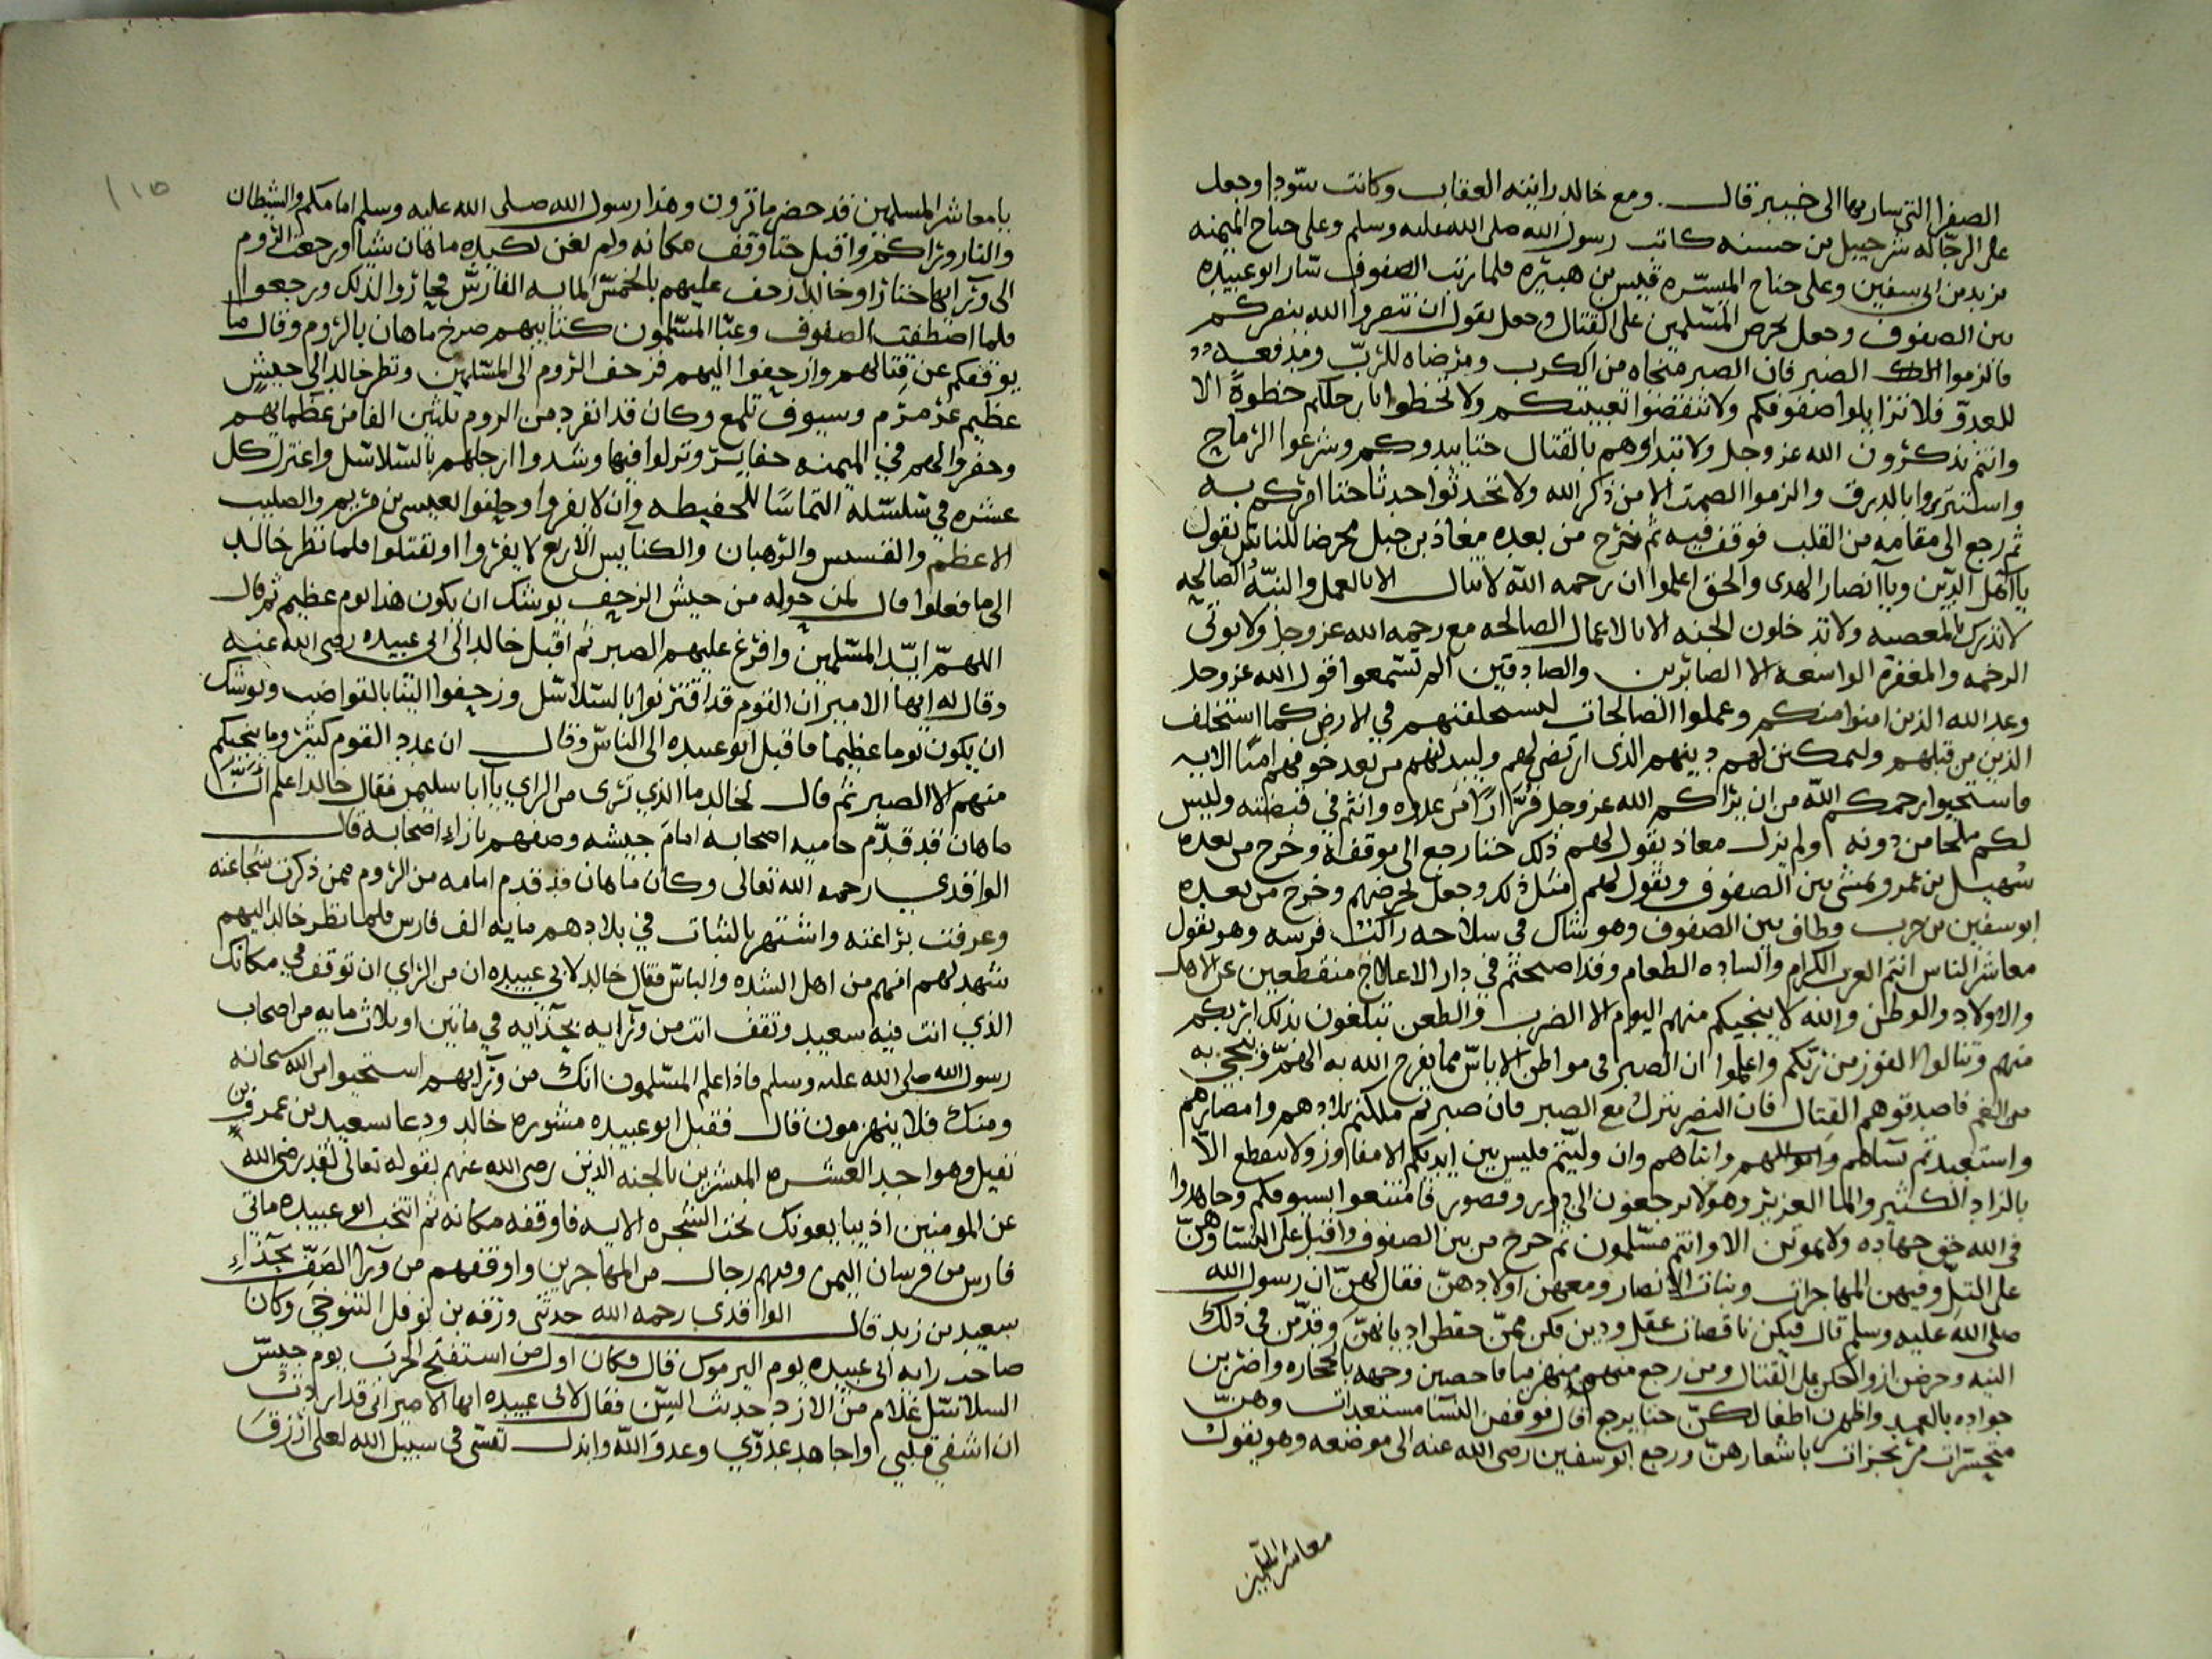 الصفرا التي سار بها الى خيبر قال ومع خالد رايته العقاب وكانت سودا وجعل
على الرجاله شرحبيل بن حسنه كاتب رسول الله صلى الله عليه وسلم وعلى جناح الميمنه
يزيد بن ابى سفين وعلى جناح الميسره قيس بن هبيره فلما ترتب الصفوف سار ابو عبيده
بين الصفوف وجعل يحرض المسلمين على القتال وجعل يقول ان تنصروا الله ينصركم
فالزموا الصبر فان الصبر منجاه من الكرب ومرضاه للرب ومدفعه
للعدو فلا تزايلوا صفوفكم ولا تنقضوا تعبيتكم ولا تخطوا بارجلكم خطوة الا
وانتم تذكرون الله عز وجل ولا تبداوهم بالقتال حتا يبدوكم وشرعوا الرماح
واستتروا بالدرق والزموا الصمت الا من ذكر الله ولا تحدثوا حدثا حتا امركم به
ثم رجع الى مقامه من القلب فوقف فيه ثم خرج من بعده معاذ بن جبل محرضا للناس يقول
يا اهل الدين ويا انصار الهدى والحق اعلموا ان رحمه الله لا تنال الا بالعمل والنيه الصالحه
لا تدرك بالمعصيه ولا تدخلون الجنه الا بالاعمال الصالحه مع رحمه الله عز وجل ولا يوتى
الرحمه والمغفرة الواسعه الا الصابرين والصادقين الم تسمعوا قول الله عز وجل
وعد الله الذين امنوا منكم وعملوا الصالحات ليستخلفنهم في الارض كما استخلف
الذين من قبلهم وليمكنن لهم دينهم الذى ارتضى لهم وليبدلنهم من بعد خوفهم امنا الايه
فاستحيوا رحمكم الله من ان يراكم الله عز وجل فرارا من عدوه وانتم في قبضته وليس
لكم ملجا من دونه ولم يزل معاذ يقول لهم ذلك حتا رجع الى موقفه وخرج من بعده
سهيل بن عمرو يمشى بين الصفوف ويقول لهم مثل ذلك وجعل يحرضهم وخرج من بعده
ابو سفين بن حرب وطاف بين الصفوف وهو شاك فى سلاحه راكب فرسه وهو يقول
معاشر الناس انتم العرب الكرام والساده الطعام وقد اصبحتم في دار الاعلاج منقطعين عن الاهل
والاولاد والوطن والله لا ينجيكم منهم اليوم الا الضرب والطعن تبلغون بذلك اربكم
منهم وتنالوا الفوز من ربكم واعلموا ان الصبر فى مواطن الاباس مما يفرج الله به الهم وينجى به
من الغم فاصدقوهم القتال فان النصر ينزل مع الصبر فان صبرتم ملكتم بلادهم وامصارهم
واستعبدتم نساهم واموالهم وابناهم وان وليتم فليس بين ايديكم الا مفاوز ولا تنقطع الا
بالزاد الكثير والما الغزير وهولا يرجعون الى دور وقصور فامتنعوا بسيوفكم وجاهدوا
فى الله حق جهاده ولا تموتن الا وانتم مسلمون ثم خرج من بين الصفوف واقبل على النسا وهن
على التل وفيهن المهاجرات وبنات الانصار ومعهن اولادهن فقال لهن ان رسول الله
صلى الله عليه وسلم قال فيكن ناقصات عقل ودين فكن ممن حفظن اديانهن وقدمن فى ذلك
النيه وحرضن ازواجكن على القتال ومن رجع منهم منهزما فاحصبن وجهه بالحجاره واضربن
جواده بالعمد واظهرن اطفالكن حتا يرجع قال فوقفن النسا مستعدات وهن
متحسرات مرتجزات باشعارهن ورجع ابو سفين رضى الله عنه الى موضعه وهو يقول
معاشر المسلمين
١١٥
يا معاشر المسلمين قد حضر ما ترون وهذا رسول الله صلى الله عليه وسلم امامكم والشيطان
والنار وراكم واقبل حتا وقف مكانه ولم تغن لكيده ماهان شيا ورجعت الروم
الى ورايها حتا زاو خالد زحف عليهم بالخمس المايه الفارس فجازوا لذلك ورجعوا
فلما اصطفت الصفوف وعبا المسلمون كتايبهم صرخ ماهان بالروم وقال ما
يوقفكم عن قتالهم وازحفوا اليهم فزحف الروم الى المسلمين ونظر خالد الى جيش
عظيم عرمرم وسيوف تلمع وكان قد انفرد من الروم ثلثين الفا من عظمائهم
وحفروا لهم في الميمنه حفاير ونزلوا فيها وشدوا ارجلهم بالسلاسل واعتزل كل
عشره في سلسله التماسا للحفيظه وان لا يفروا وحلفوا بعيسى بن مريم والصليب
الاعظم والقسيس والرهبان والكنايس الاربع لا يفروا او يقتلوا فلما نظر خالد
الى ما فعلوا قال لمن حوله من جيش الزحف يوشك ان يكون هذا يوم عظيم ثم قال
اللهم ايد المسلمين وافرغ عليهم الصبر ثم اقبل خالد الى ابى عبيده رضى الله عنه
وقال له ايها الامير ان القوم قد اقترنوا بالسلاسل وزحفوا الينا بالقواضب ويوشك
ان يكون يوما عظيما فاقبل ابو عبيده الى الناس وقال ان عدد القوم كثير وما ينجيكم
منهم الا الصبر ثم قال لخالد ما الذي ترى من الراي يا ابا سليمن فقال خالد اعلم ان
ماهان قد قدم حاميه اصحابه امام جيشه وصفهم بازاء اصحابه قال
الواقدي رحمه الله تعالى وكان ماهان قد قدم امامه من الروم ممن ذكرت شجاعته
وعرفت براعته واشتهر بالثبات في بلادهم مايه الف فارس فلما نظر خالد اليهم
شهد لهم انهم من اهل الشده والباس فقال خالد لابى عبيده ان من الراي ان توقف في مكانك
الذي انت فيه سعيد وتقف انت من ورايه بحذايه في ماتين او ثلاث مايه من اصحاب
رسول الله صلى الله عليه وسلم فاذا علم المسلمون انك من ورايهم استحيوا من الله سبحانه
ومنك فلا ينهزمون قال فقبل ابو عبيده مشوره خالد ودعا بسعيد بن عمرو بن
نفيل وهو احد العشره المبشرين بالجنه الذين رضى الله عنهم بقوله تعالى لقد رضى الله
عن المومنين اذ يبايعونك تحت الشجره الايه فاوقفه مكانه ثم انتخب ابو عبيده ماتى
فارس من فرسان اليمن وفيهم رجال من المهاجرين واوقفهم من ورا الصف بحذاء
سعيد بن زيد قال الواقدي رحمه الله حدثنى ورقه بن نوفل التنوخي وكان
صاحب رايه ابى عبيده يوم اليرموك قال فكان اول من استفتح الحرب يوم جيش
السلاسل غلام من الازد حدث السن فقال لابى عبيده ايها الامير انى قد اردت
ان اشفي قلبي واجاهد عدوي وعدو الله وابذل نفسى فى سبيل الله لعلى ارزق